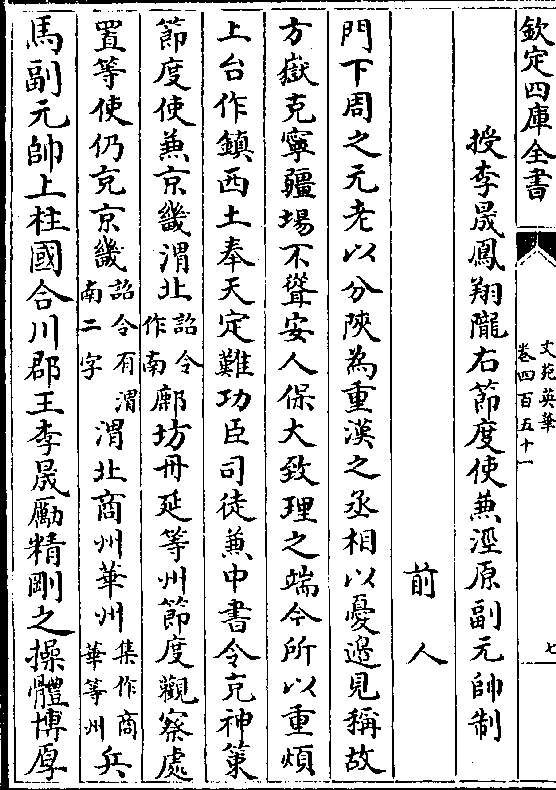 欽定四庫全書
文苑英華
卷四百五十一
七
授李晟鳳翔隴右節度使兼涇原副元帥制
前人
門下周之元老以分陜為重漢之丞相以憂邉見稱故
方嶽克寧疆場不聳安人保大致理之端今所以重煩
上台作鎮西土奉天定難功臣司徒兼中書令充神策
節度使兼京畿渭北詔令作南鄜坊丹延等州節度觀察處
置等使仍充京畿詔令有渭南二字渭北商州華州集作商華等州兵
馬副元帥上柱國合川郡王李晟勵精剛之操體博厚